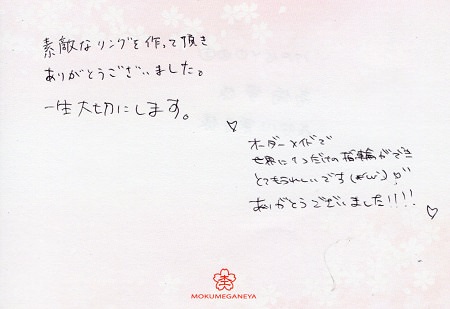 素敵なリングを作って頂き
ありがとうございました。
一生大切にします。
オーダーメイドで
世界に1つだけの指輪ができ
とてもうれしいです(*'ω')
ありがとうございました!!!!
MOKUMEGANEYA